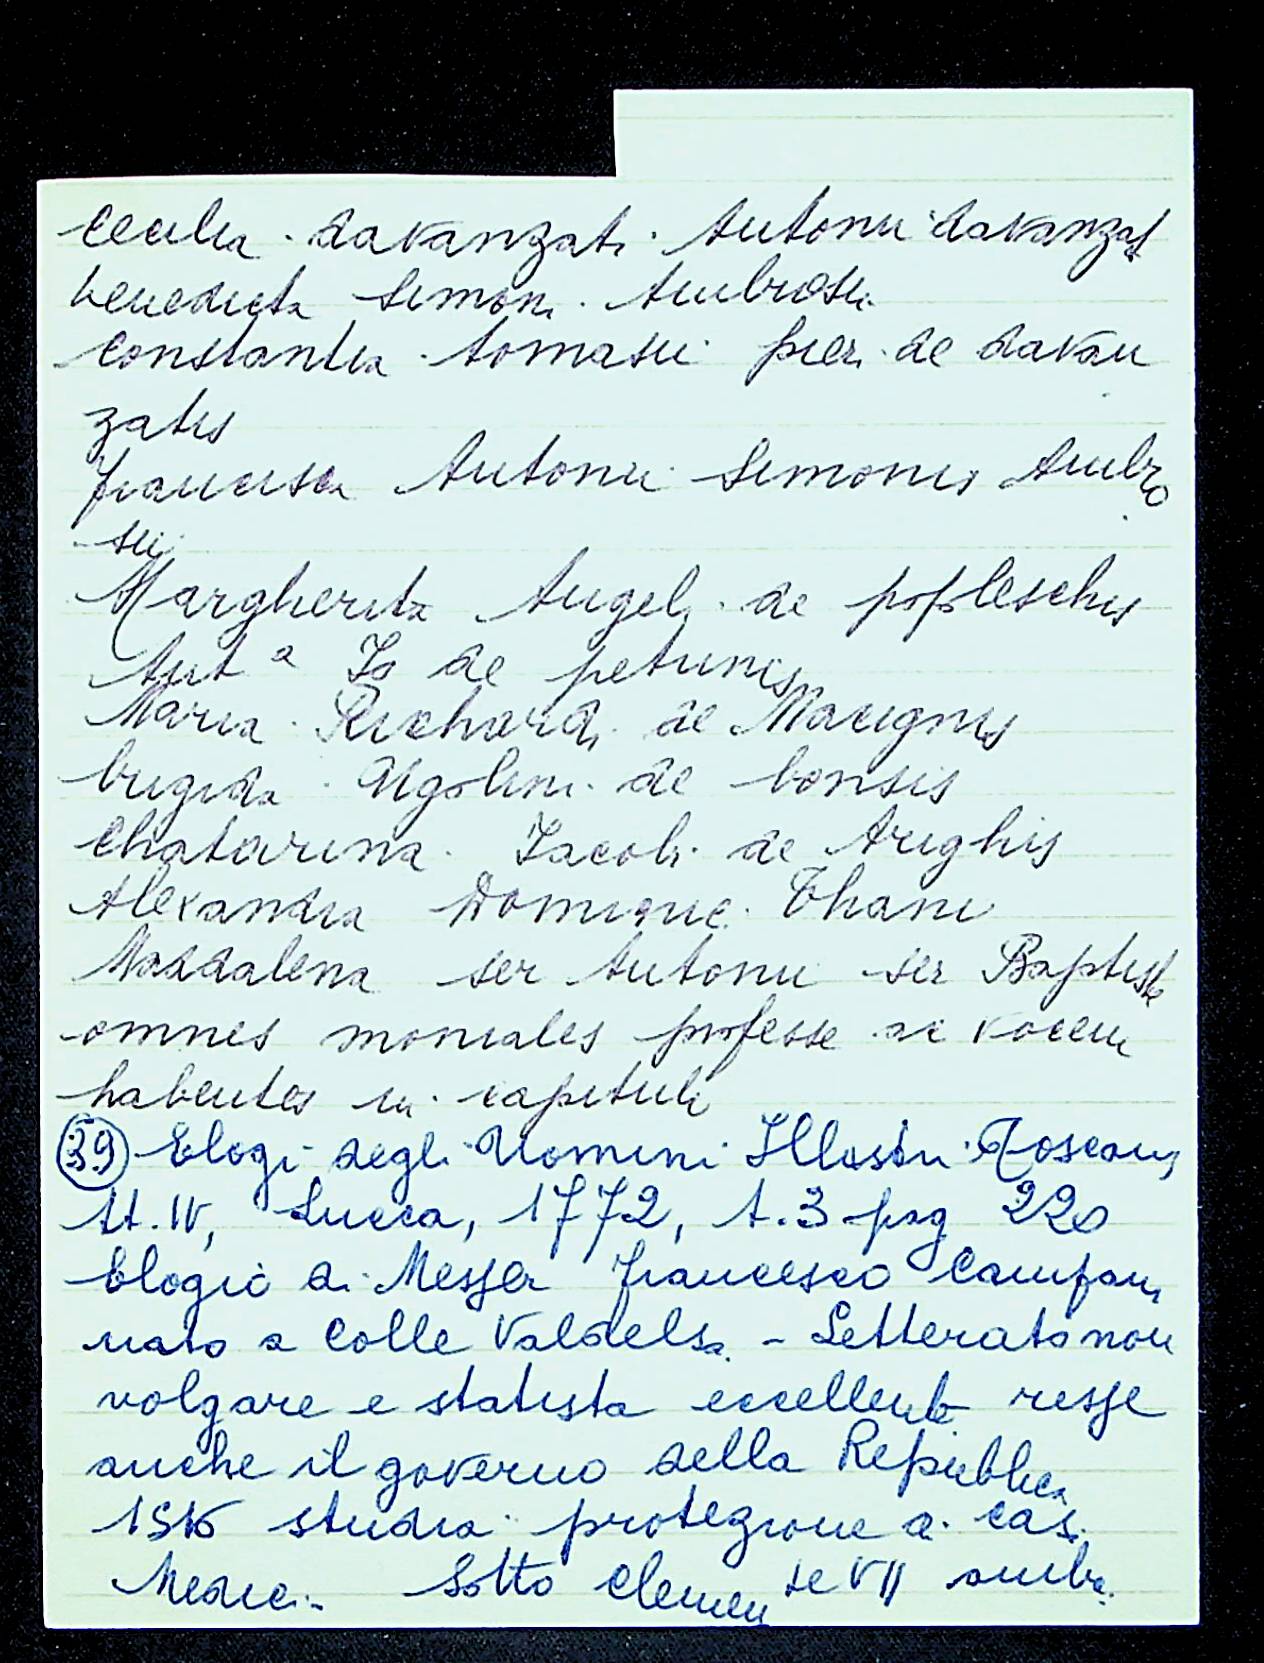 Cecilia davanzati Antonii davanzati
benedicta Simoni Ambrosii
Constantia tomasii pieri de davan
zatis
francisca Antonii Simonis Ambro
sii
Margherita Angeli de popleschis
Ant a Io de petrinis
Maria Richardi de Macignis
brigida Ugolini de bonsis
Chatarina Iacobi de Arighis
Alexandra Dominici Thani
Maddalena ser Antonii ser Baptiste
omnes moniales professe ac vocem
habentes in capitulo
(39) Elogi degli Uomini Illustri Toscani,
t. IV, Lucca, 1772, t. 3 pag 220
Elogio di Messer francesco Campani
nato a Colle Valdelsa - Letterato non
volgare e statista eccellente resse
anche il governo della Repubblica
studia protezione a cas.
Medici - Sotto Clemente VII amb.